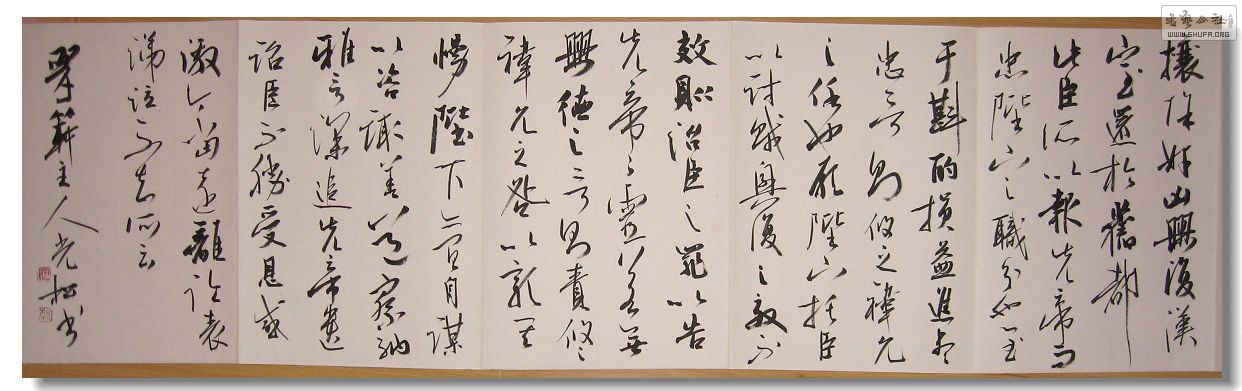 攘除奸凶興復漢
室還於舊都
此臣所以報先帝而
忠陛下之職分也至
于斟酌損益進盡
忠言則攸之禕允
之任也願陛下托臣
以討賊興復之效不
效則治臣之罪以告
先帝之靈若無
興德之言則責攸之
禕允之咎以彰其
慢陛下亦宜自謀
以咨諏善道察納
雅言深追先帝遺
詔臣不勝受恩感
激今當遠離臨表
涕泣不知所云
主人光松書
書藝公社
WWW.SHUFA.ORG